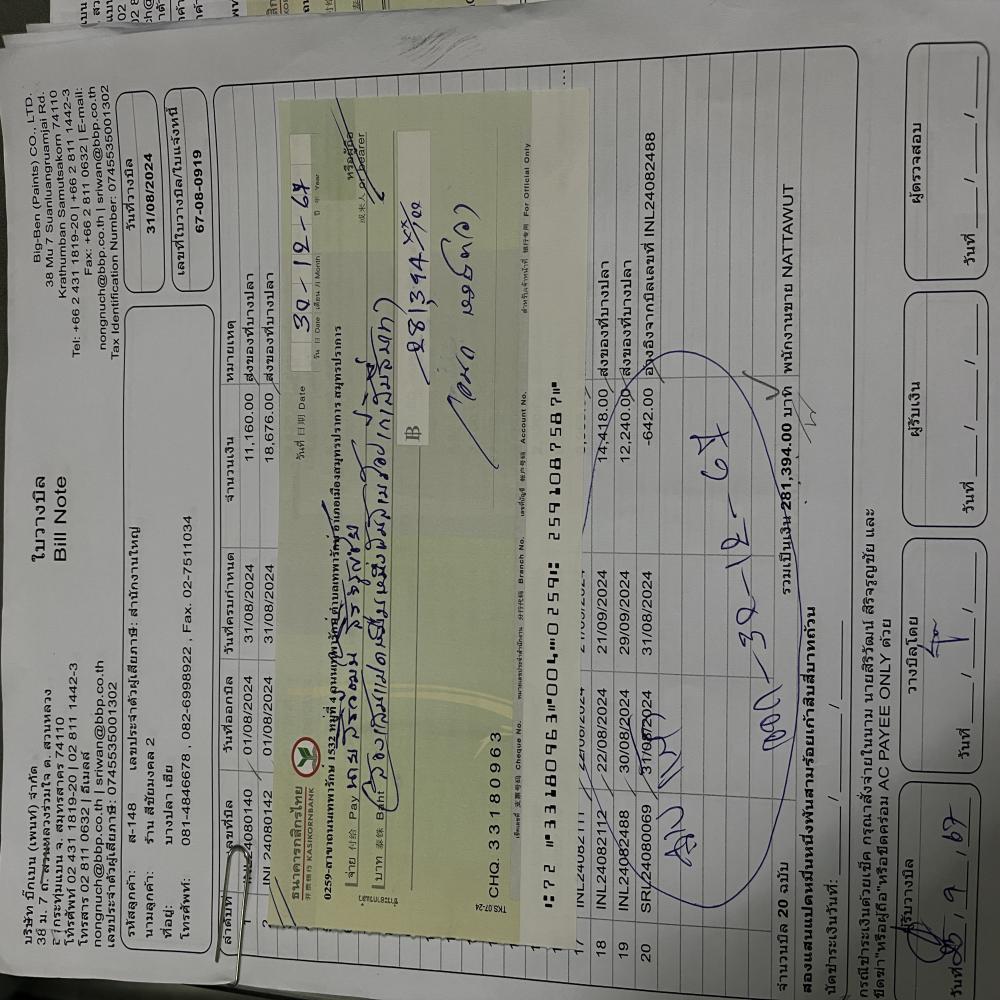 บริษัท บิ๊กเบน (เพนท์) จำกัด
38 ม. 7 ถ.สวนหลวงร่วมใจ ต. สวนหลวง
อ.กระทุ่มแบน จ. สมุทรสาคร 74110
โทรศัพท์ 02 431 1819-20 | 02 811 1442-3
โทรสาร 02 811 0632 | อีเมลล์
nongnuch@bbp.co.th | sriwan@bbp.co.th
เลขประจำตัวผู้เสียภาษี: 0745535001302
ใบวางบิล
Bill Note
Big-Ben (Paints) CO., LTD.
38 Mu 7 Suanluangruamjai Rd.
Krathumban Samutsakorn 74110
Tel: +66 2 431 1819-20 | +66 2 811 1442-3
Fax: +66 2 811 0632 | E-mail:
nongnuch@bbp.co.th | sriwan@bbp.co.th
Tax Identification Number: 0745535001302
รหัสลูกค้า: ส-148 เลขประจำตัวผู้เสียภาษี: สำนักงานใหญ่
นามลูกค้า: ร้าน สีชัยมงคล 2
ที่อยู่: บางปลา เฮีย
โทรศัพท์: 081-4846678 , 082-6998922 , Fax. 02-7511034
วันที่วางบิล
31/08/2024
เลขที่ใบวางบิล/ใบแจ้งหนี้
67-08-0919
ลำดับที่ เลขที่บิล วันที่ออกบิล วันที่ครบกำหนด จำนวนเงิน หมายเหตุ
1 INL24080140 01/08/2024 31/08/2024 11,160.00 ส่งของที่บางปลา
2 INL24080142 01/08/2024 31/08/2024 18,676.00 ส่งของที่บางปลา
ธนาคารกสิกรไทย
开泰银行 KASIKORNBANK
วันที่ 日期 Date 30-12-67
วัน 日 Date เดือน 月 Month ปี 年 Year
0259-สาขาถนนเทพารักษ์ 1532 หมู่ที่ 4 ถนนเทพารักษ์ ตำบลเทพารักษ์ อำเภอเมืองสมุทรปราการ สมุทรปราการ
จ่าย 付给 Pay นายสิริวัฒน์ สิริจรูญชัย
หรือผู้ถือ
或来人 or bearer
บาท 泰铢 Baht สองแสนแปดหมื่นหนึ่งพันสามร้อยเก้าสิบสี่บาท
฿ 281,394 xx/100
TKS 07-24
CHQ. 33180963
เช็คเลขที่ 支票号码 Cheque No. Branch No. เลขที่บัญชี 帐户号码 Account No. สำหรับเจ้าหน้าที่ 银行专用 For Official Only
17 INL24082111 22/08/2024 21/09/2024
18 INL24082112 22/08/2024 21/09/2024 14,418.00 ส่งของที่บางปลา
19 INL24082488 30/08/2024 29/09/2024 12,240.00 ส่งของที่บางปลา
20 SRI24080069 31/08/2024 31/08/2024 -642.00 อ้างอิงจากบิลเลขที่ INL24082488
30-12-67
จำนวนบิล 20 ฉบับ รวมเป็นเงิน 281,394.00 บาท พนักงานขาย NATTAWUT
สองแสนแปดหมื่นหนึ่งพันสามร้อยเก้าสิบสี่บาทถ้วน
นัดชำระเงินวันที่: / /
กรณีชำระเงินด้วยเช็ค กรุณาสั่งจ่ายในนาม นายสิริวัฒน์ สิริจรูญชัย และ
ขีดฆ่า"หรือผู้ถือ"หรือขีดคร่อม AC PAYEE ONLY ด้วย
ผู้รับวางบิล วางบิลโดย ผู้รับเงิน ผู้ตรวจสอบ
วันที่ / 9 / 67 วันที่ / / วันที่ / / วันที่ / /